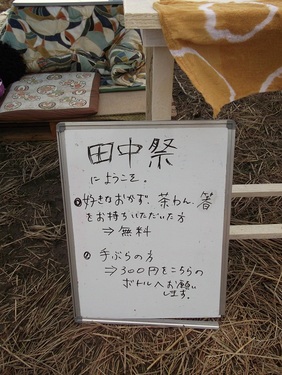 田中祭
にようこそ。
❶好きなおかず、茶わん、箸
をお持ちいただいた方
⇒無料
❷手ぶらの方
⇒300円をこちらの
ボトルへお願い
します。